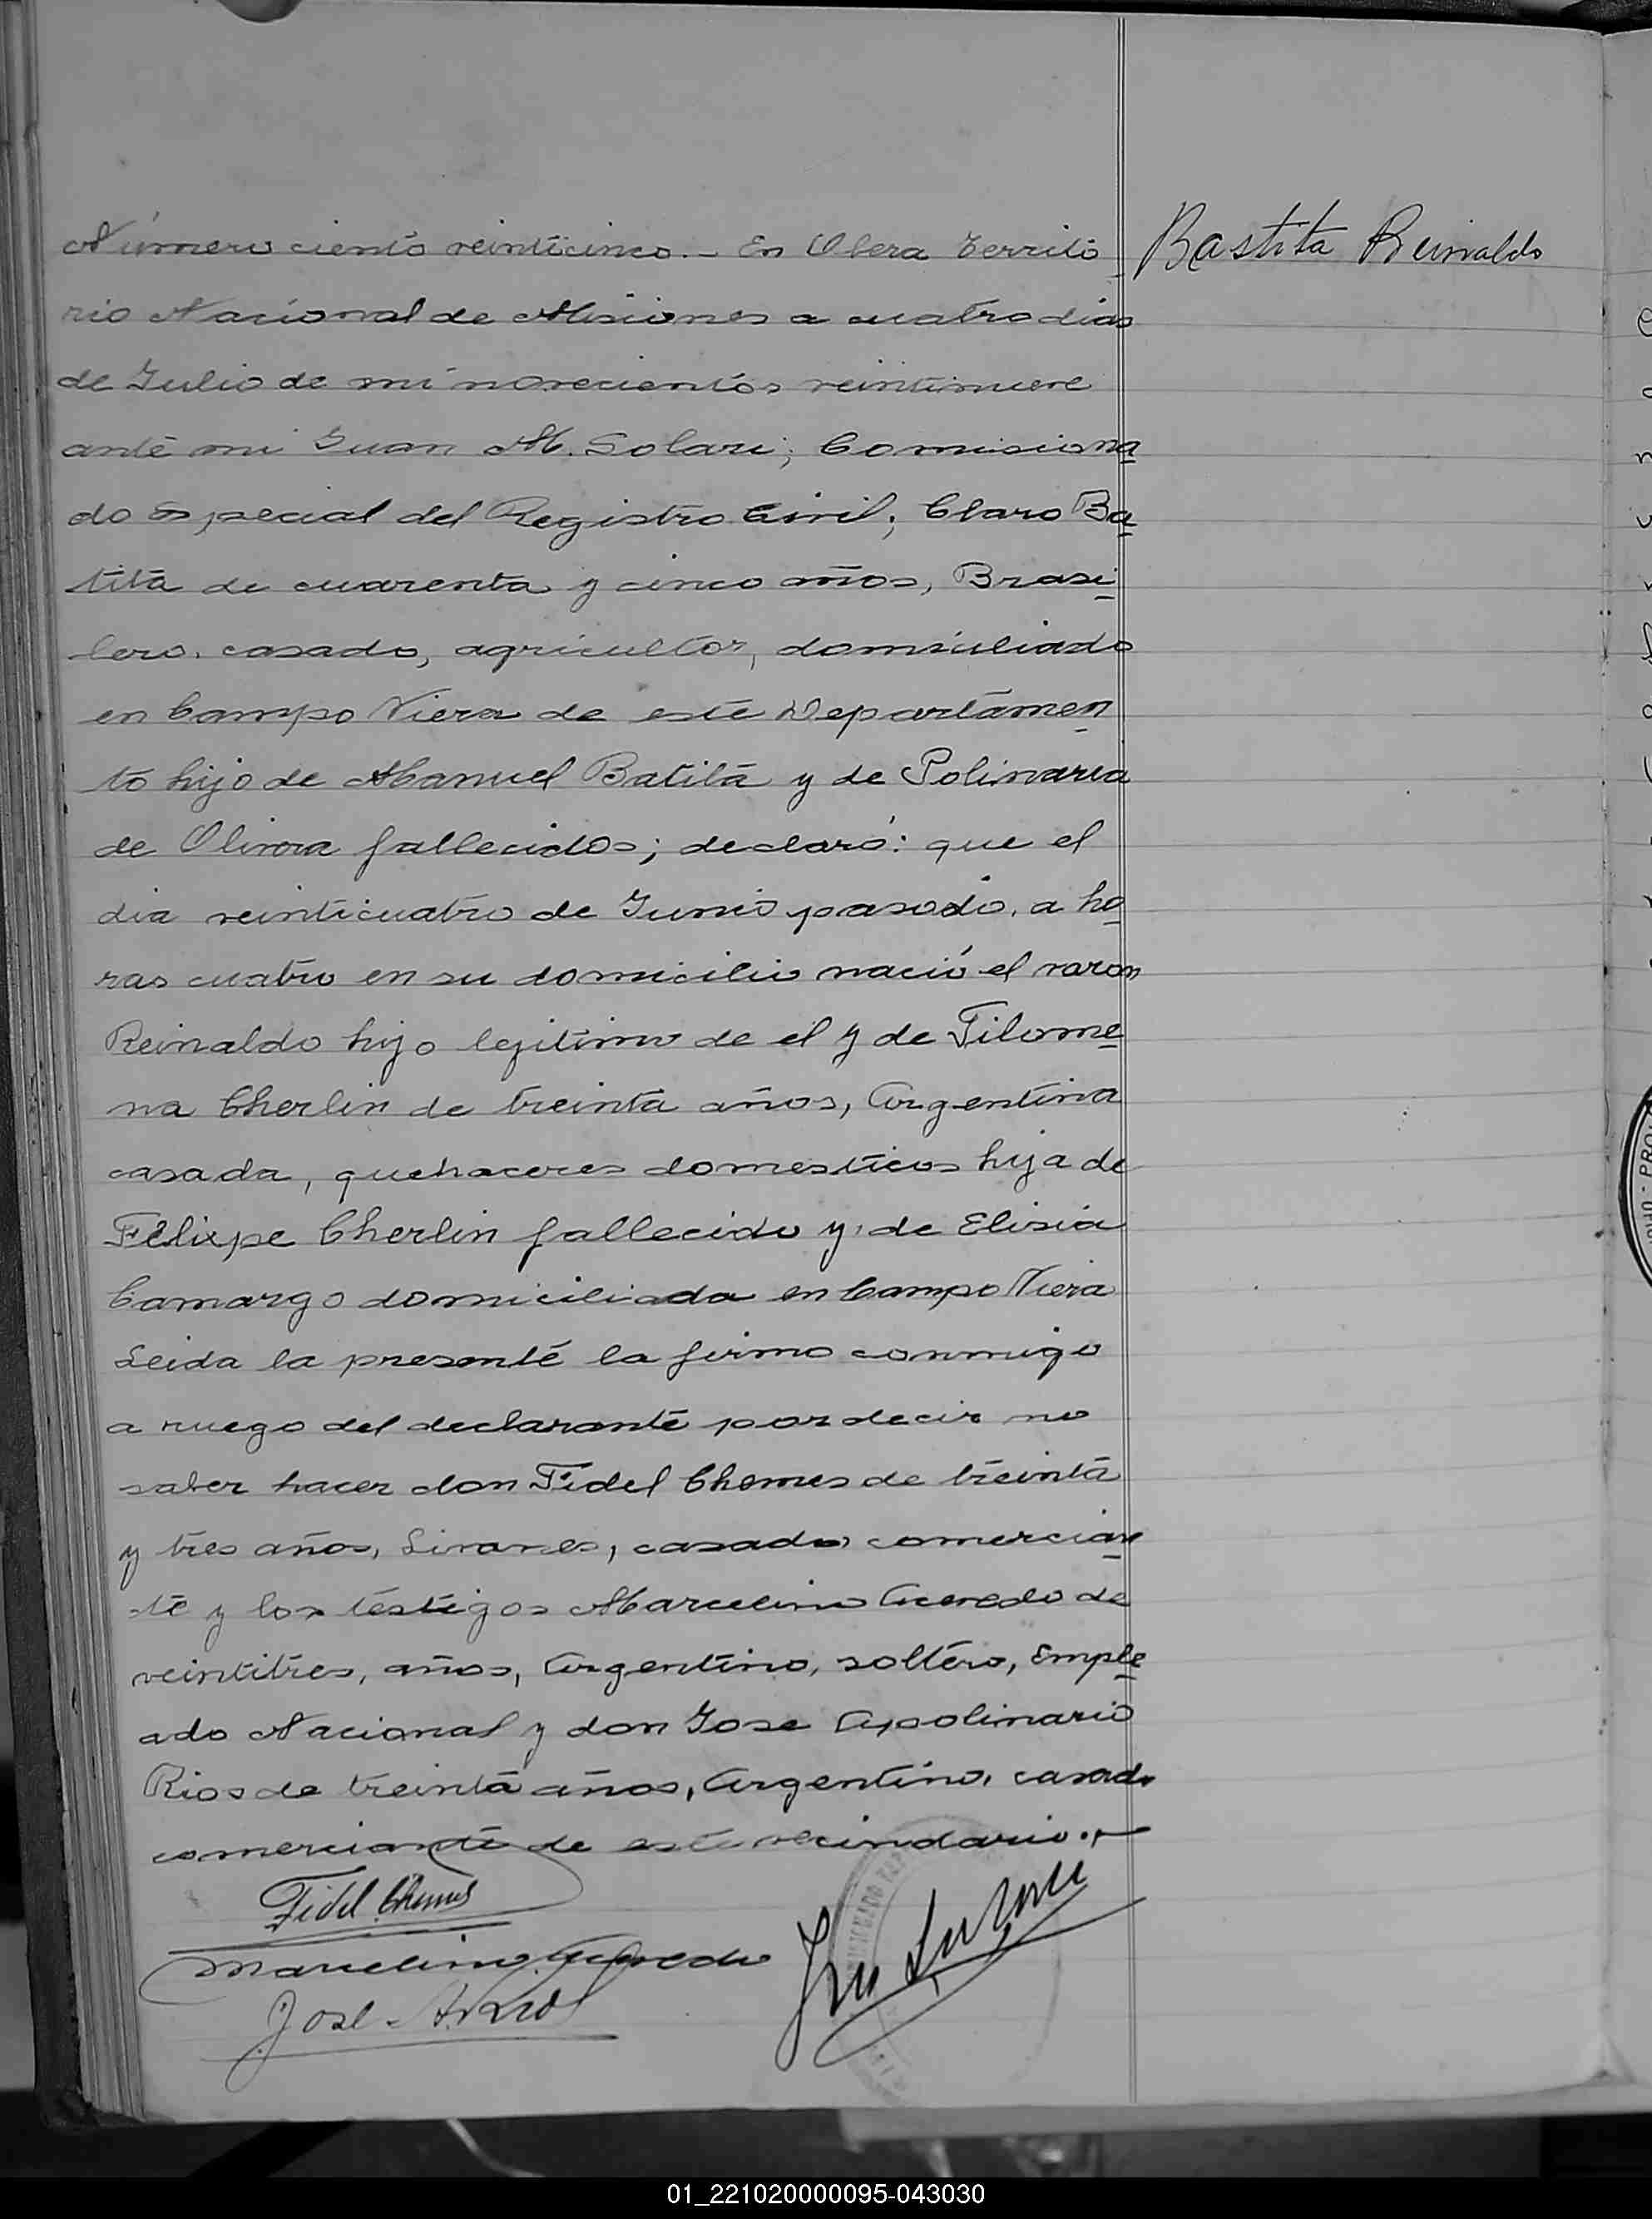 Número ciento veinticinco.- En Obera Territo
Bastita Reinaldo
rio Nacional de Misiones a cuatro dias
de Julio de mi novecientos veintinueve
ante mi Juan M. Solari; Comisiona
do especial del Registro Civil; Claro Ba
tita de cuarenta y cinco años, Brasi
lero. casado, agricultor, domiciliado
en Campo Viera de este Departamen
to hijo de Manuel Batita y de Polinaria
de Olivera fallecidos; declaró: que el
dia veinticuatro de Junio pasado, a ho
ras cuatro en su domicilio nació el varon
Reinaldo hijo legitimo de el y de Filome
na Cherlin de treinta años, Argentina
casada, quehaceres domesticos hija de
Felixpe Cherlin fallecido y de Elisia
Camargo domiciliada en Campo Viera
Leida la presente la firmo conmigo
a ruego del declarante por decir no
saber hacer don Fidel Chemes de treinta
y tres años, Livanes, casado comercian
te y los testigos Marcelino Acevedo de
veintitres, años, Argentino, soltero, Emple
ado Nacional y don Jose Apolinario
Rios de treinta años, Argentino, casado
comerciante de este vecindario.-
Fidel Chemes
Marcelino Acevedo
Jose A. Rios
01_221020000095-043030